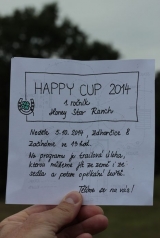 HAPPY CUP 2014
1. ročník
Honey Star Ranch
Neděle 5.10.2014, Zdhořice 8
Začínáme ve 14 hod.
Na programu je trailová úloha,
kterou můžeme jít ze země i ze
sedla a potom opékání buřtů.
Těšíme se na vás!